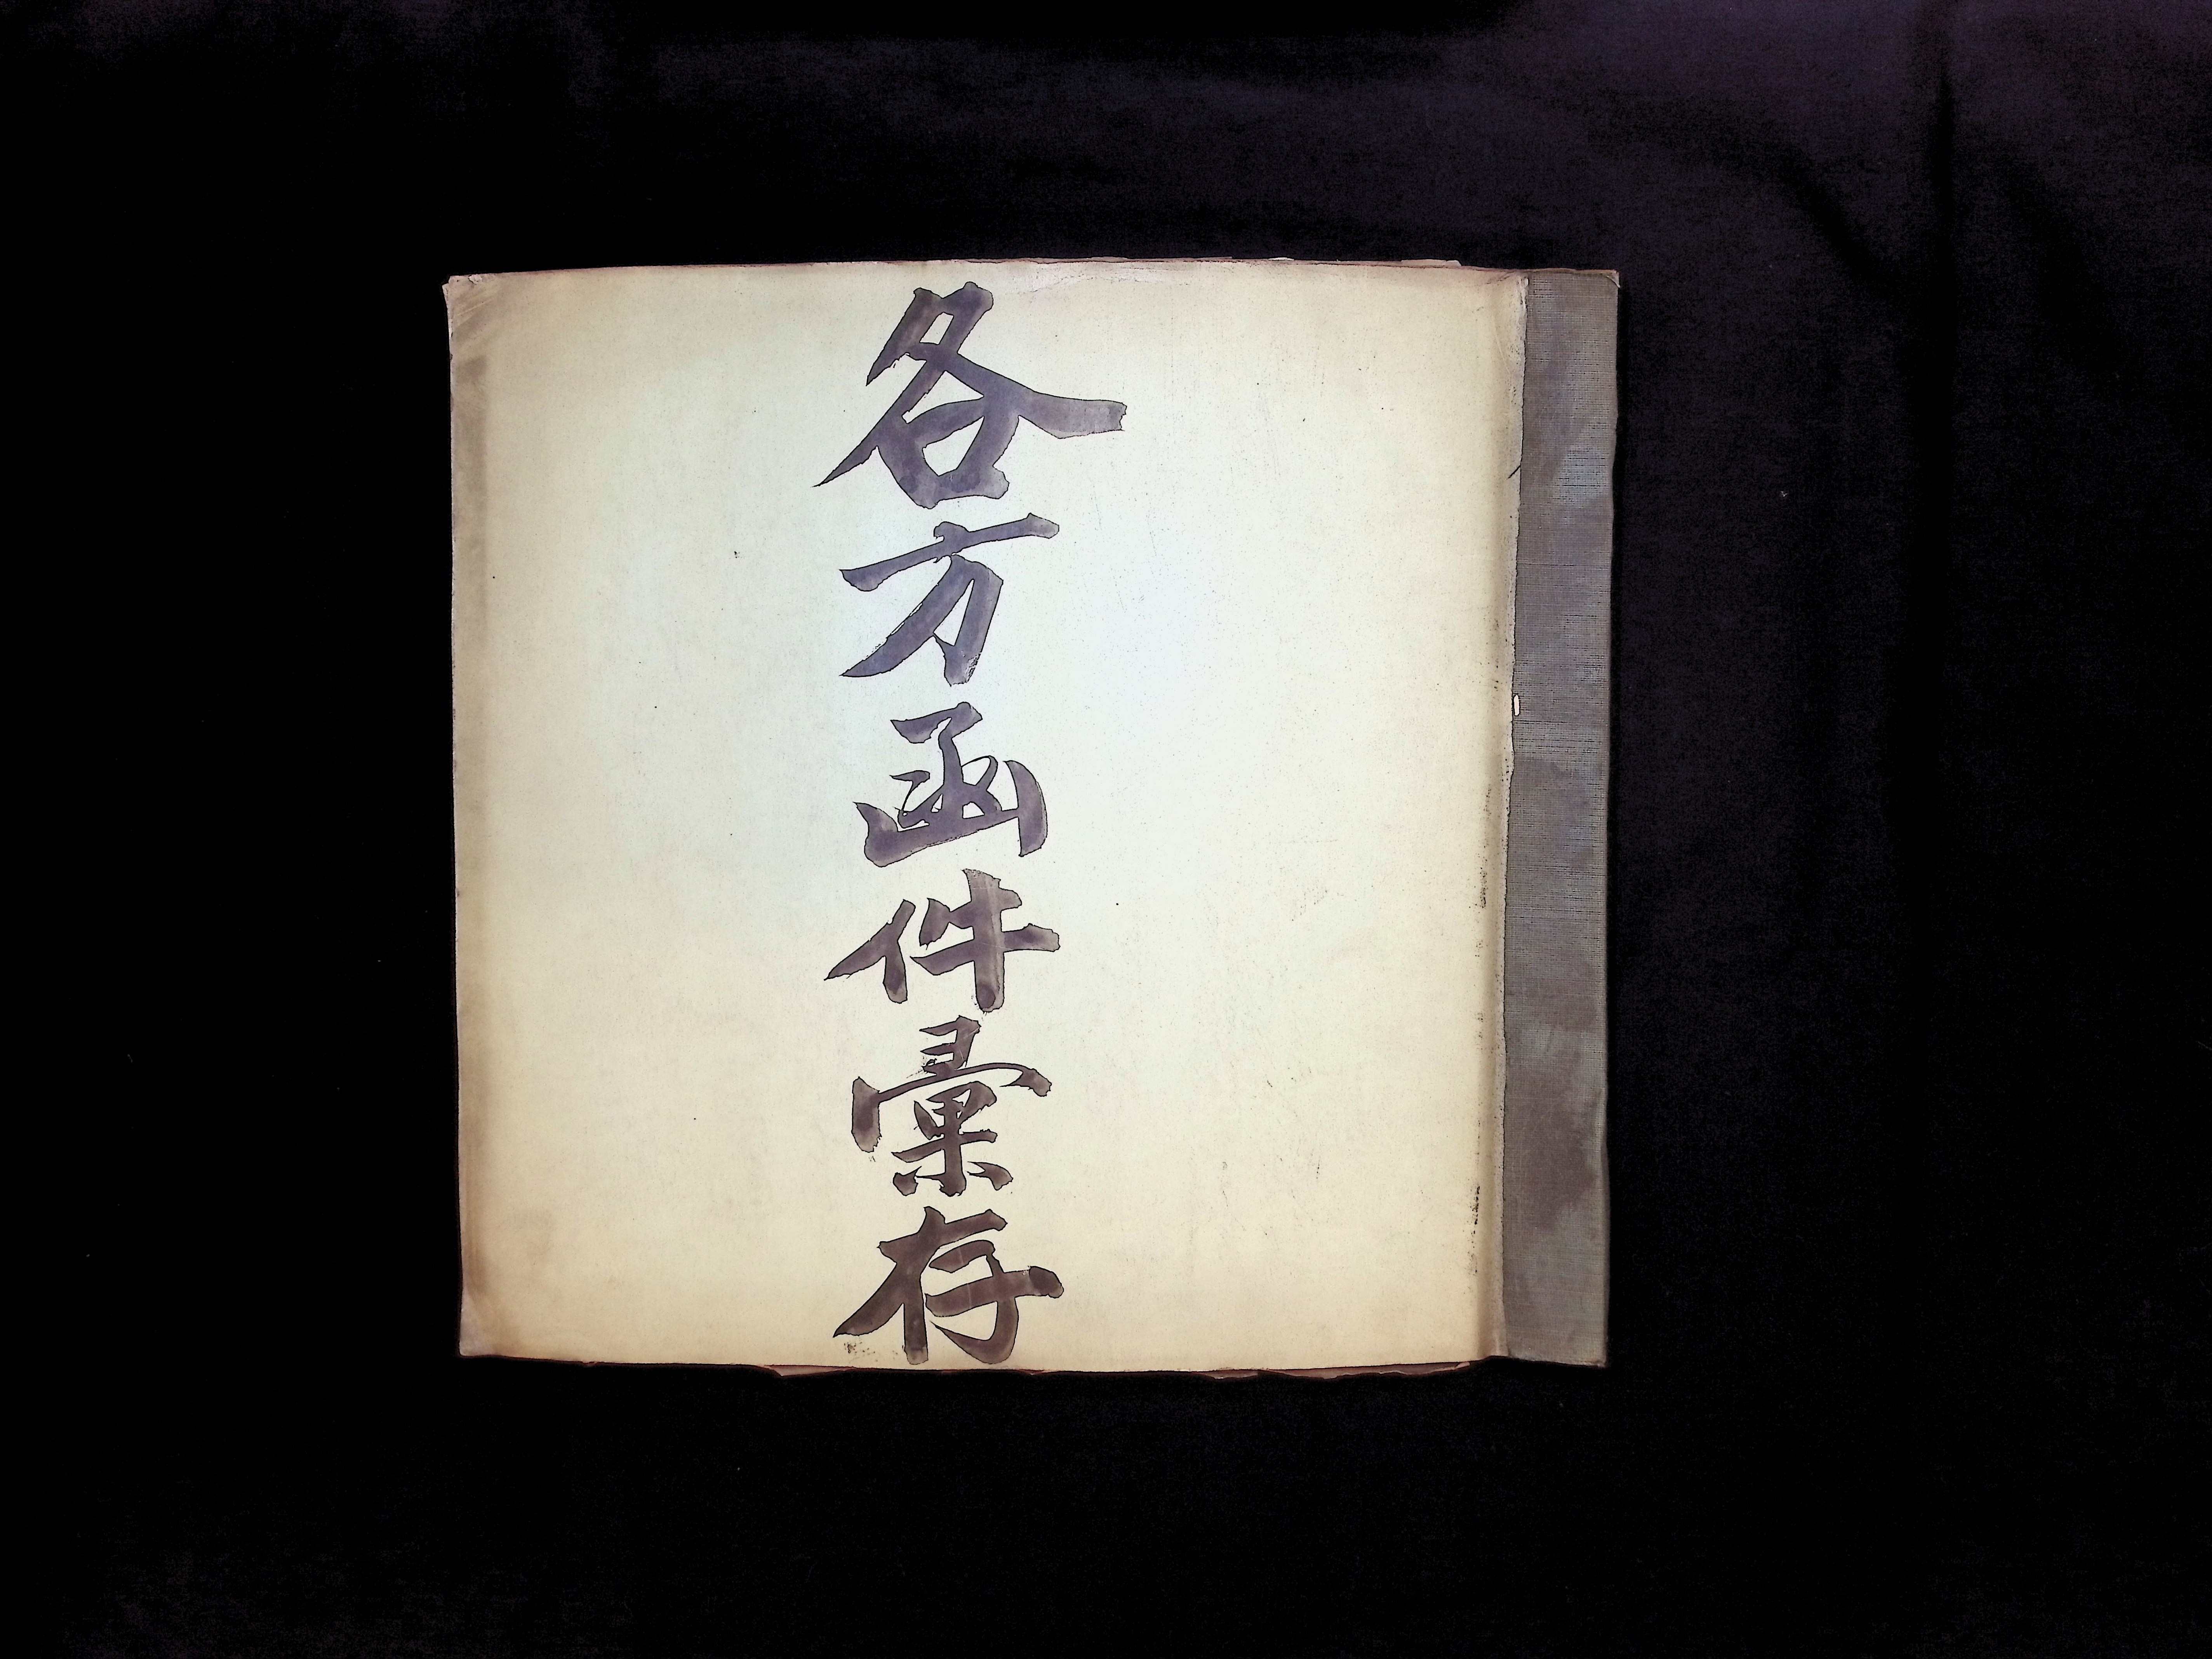 各方函件彙存